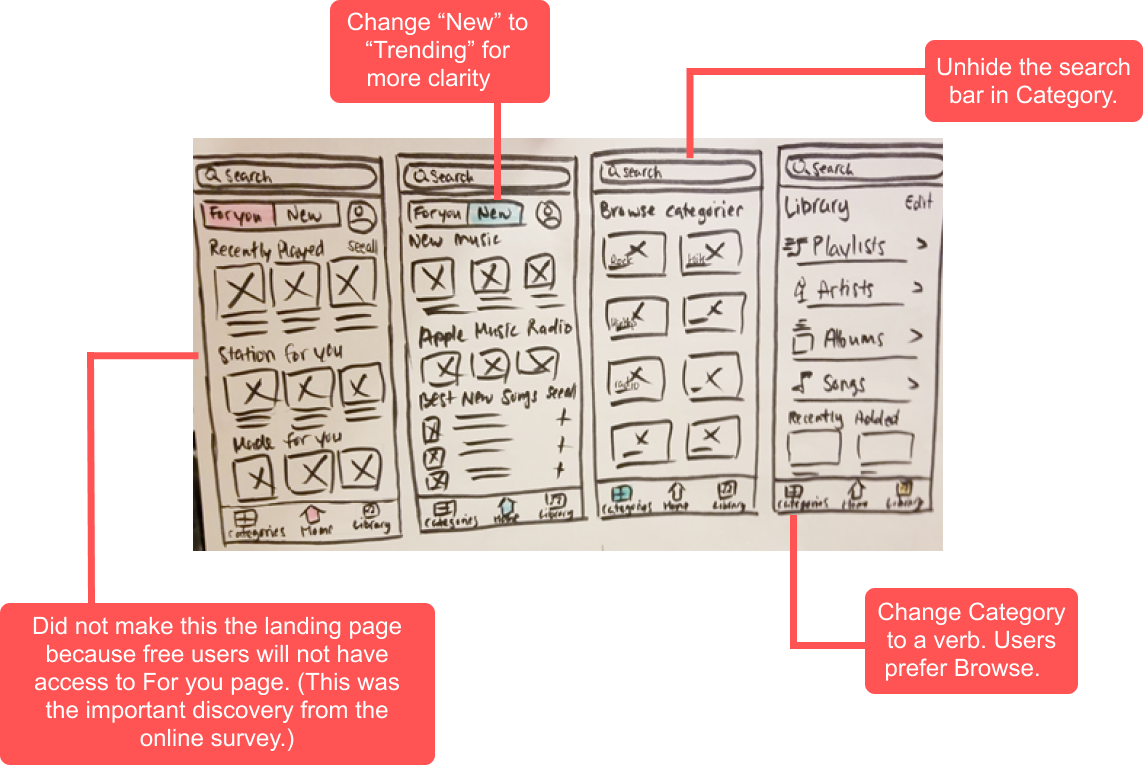 Change “New” to
“Trending” for
more clarity
Unhide the search
bar in Category.
Search
For you New
Recently Played See all
Station for you
Made for you
Categories Home Library
Search
For you New
New Music
Apple Music Radio
Best New Songs See all
Categories Home Library
Search
Browse categorier
Rock Hits
radio
Categories Home Library
Search
Library Edit
Playlists >
Artists >
Albums >
Songs >
Recently Added
Categories Home Library
Did not make this the landing page
because free users will not have
access to For you page. (This was
the important discovery from the
online survey.)
Change Category
to a verb. Users
prefer Browse.